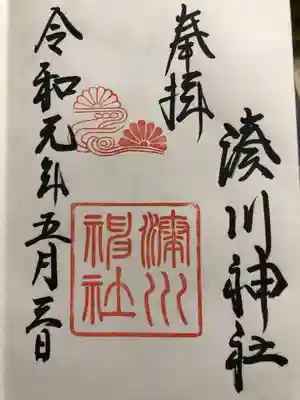 奉拝
湊川神社
湊川神社
令和元年五月三日